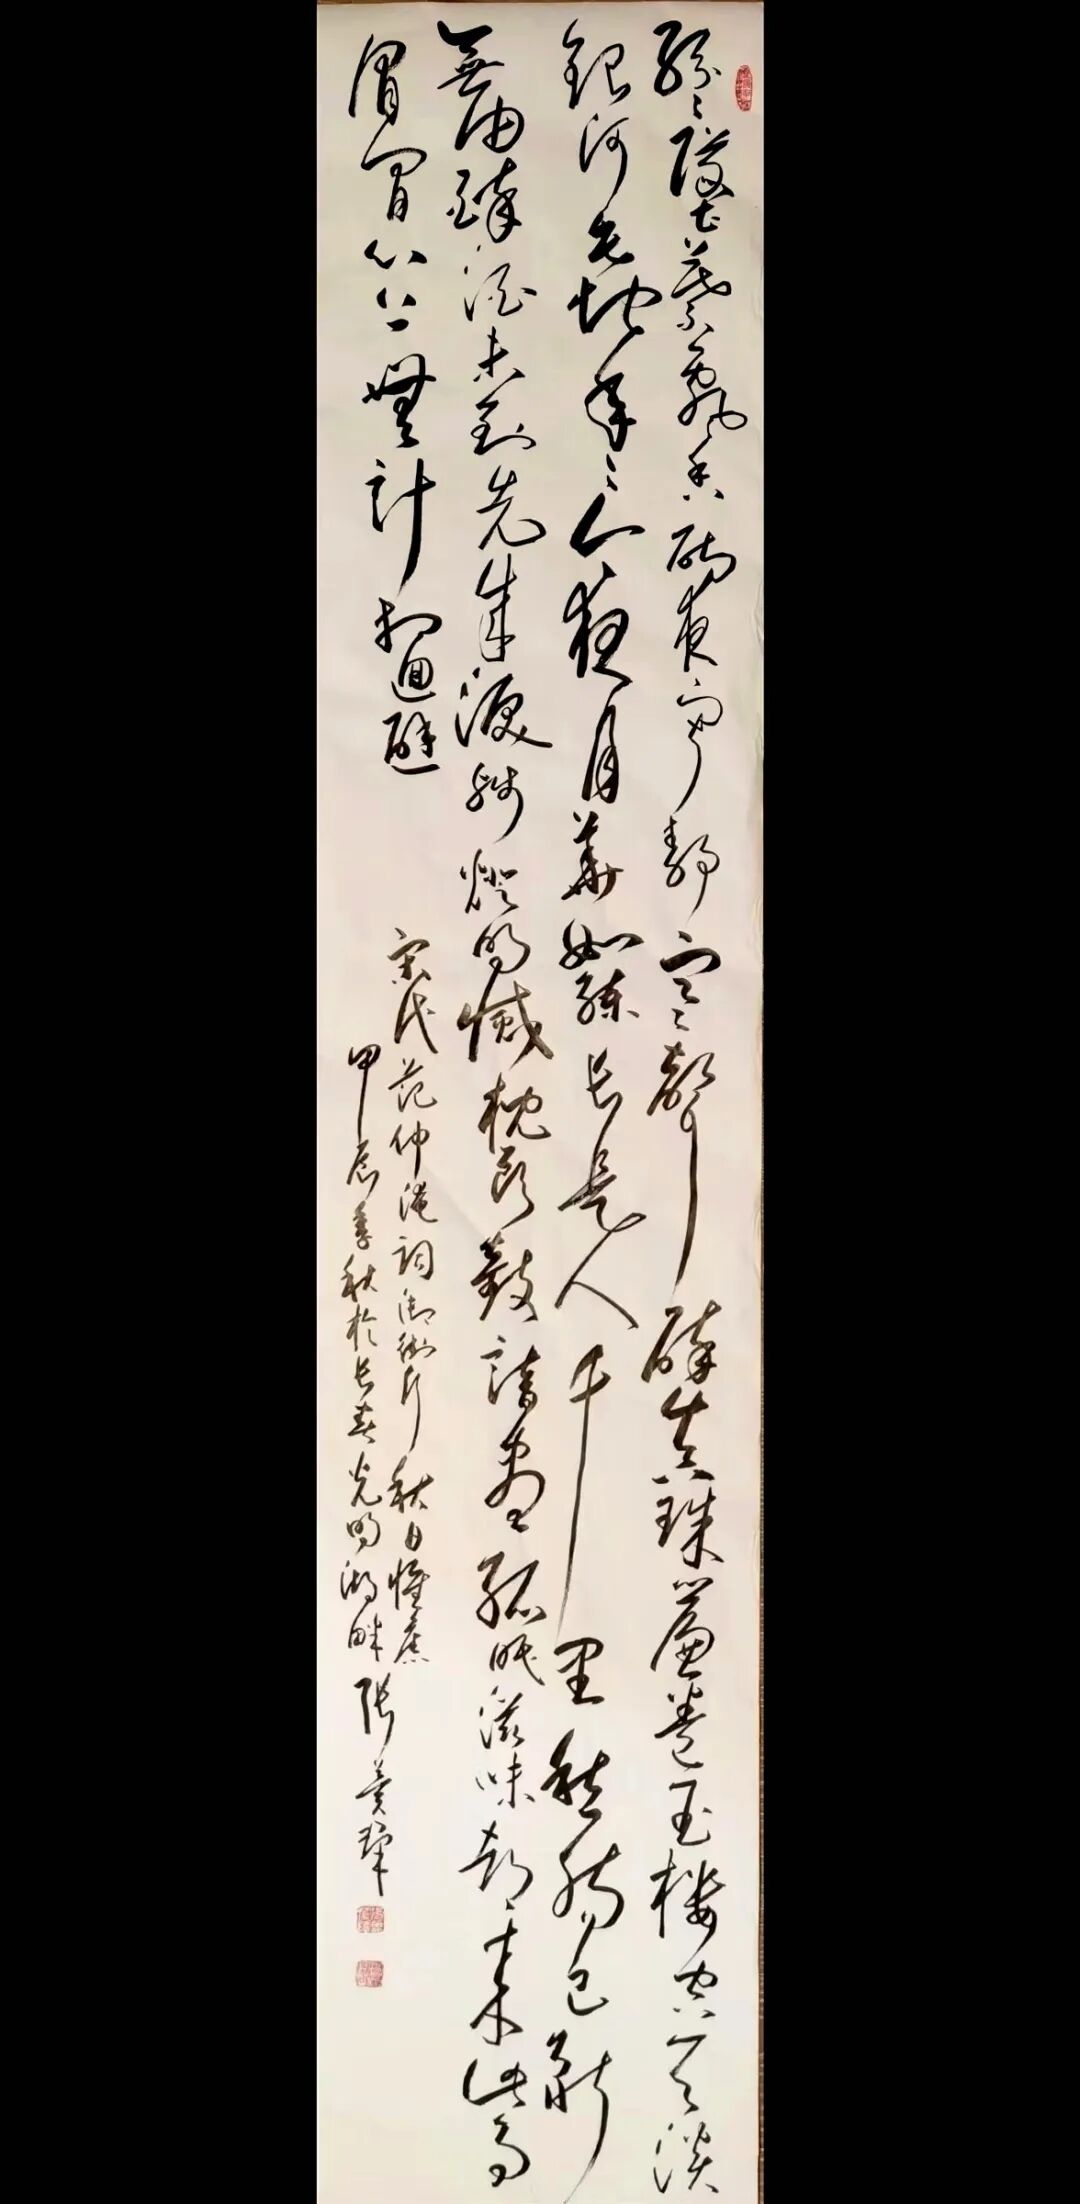 紛々墜葉飄香砌夜寂靜寒聲碎真珠簾卷玉樓空天淡
銀河垂地年々今夜月華如練長是人千里愁腸已斷
無由醉酒未到先成淚殘燈明滅枕頭攲諳盡孤眠滋味都來此事
眉間心上無計相迴避
宋代范仲淹詞御街行秋日懷舊
甲辰季秋於長春光明湖畔張